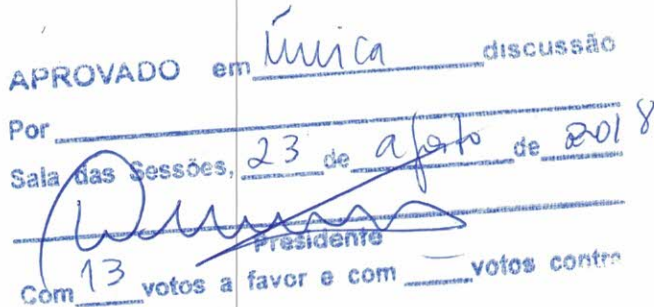 APROVADO em Única discussão
Por
Sala das Sessões, 23 de agosto de 2018
Presidente
Com 13 votos a favor e com — votos contra